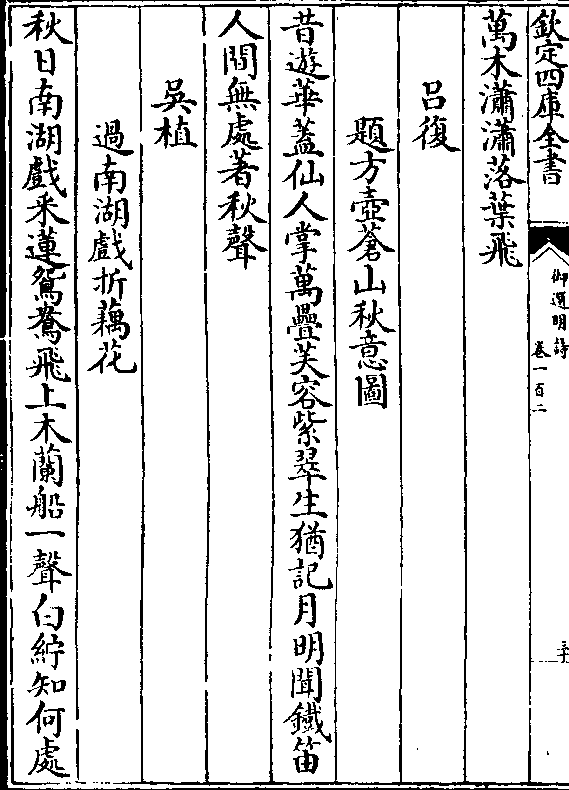 欽定四庫全書
御選明詩
卷一百二
萬木瀟瀟落葉飛
呂復
題方壺蒼山秋意圖
昔遊華蓋仙人掌萬疊芙容紫翠生猶記月明聞鐵笛
人間無處著秋聲
吳植
過南湖戲折藕花
秋日南湖戲采蓮鴛鴦飛上木蘭船一聲白紵知何處